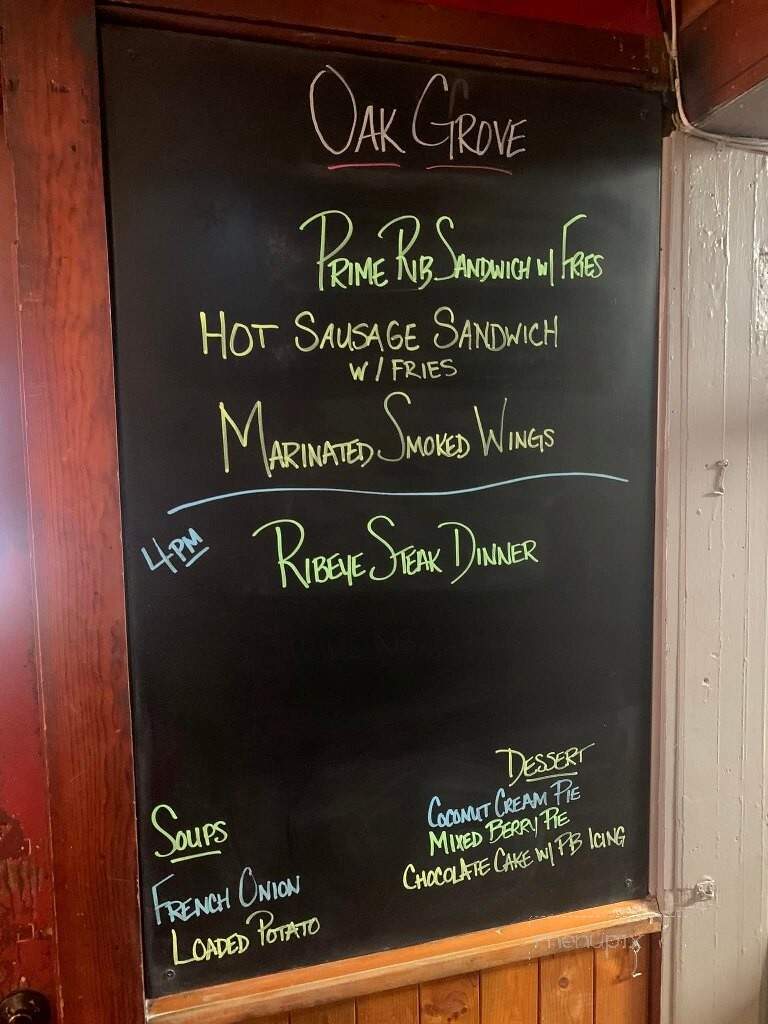 OAK GROVE
PRIME RIB SANDWICH W/ FRIES
HOT SAUSAGE SANDWICH
W/ FRIES
MARINATED SMOKED WINGS
4PM
RIBEYE STEAK DINNER
DESSERT
COCONUT CREAM PIE
MIXED BERRY PIE
CHOCOLATE CAKE W/ PB ICING
SOUPS
FRENCH ONION
LOADED POTATO
menupix